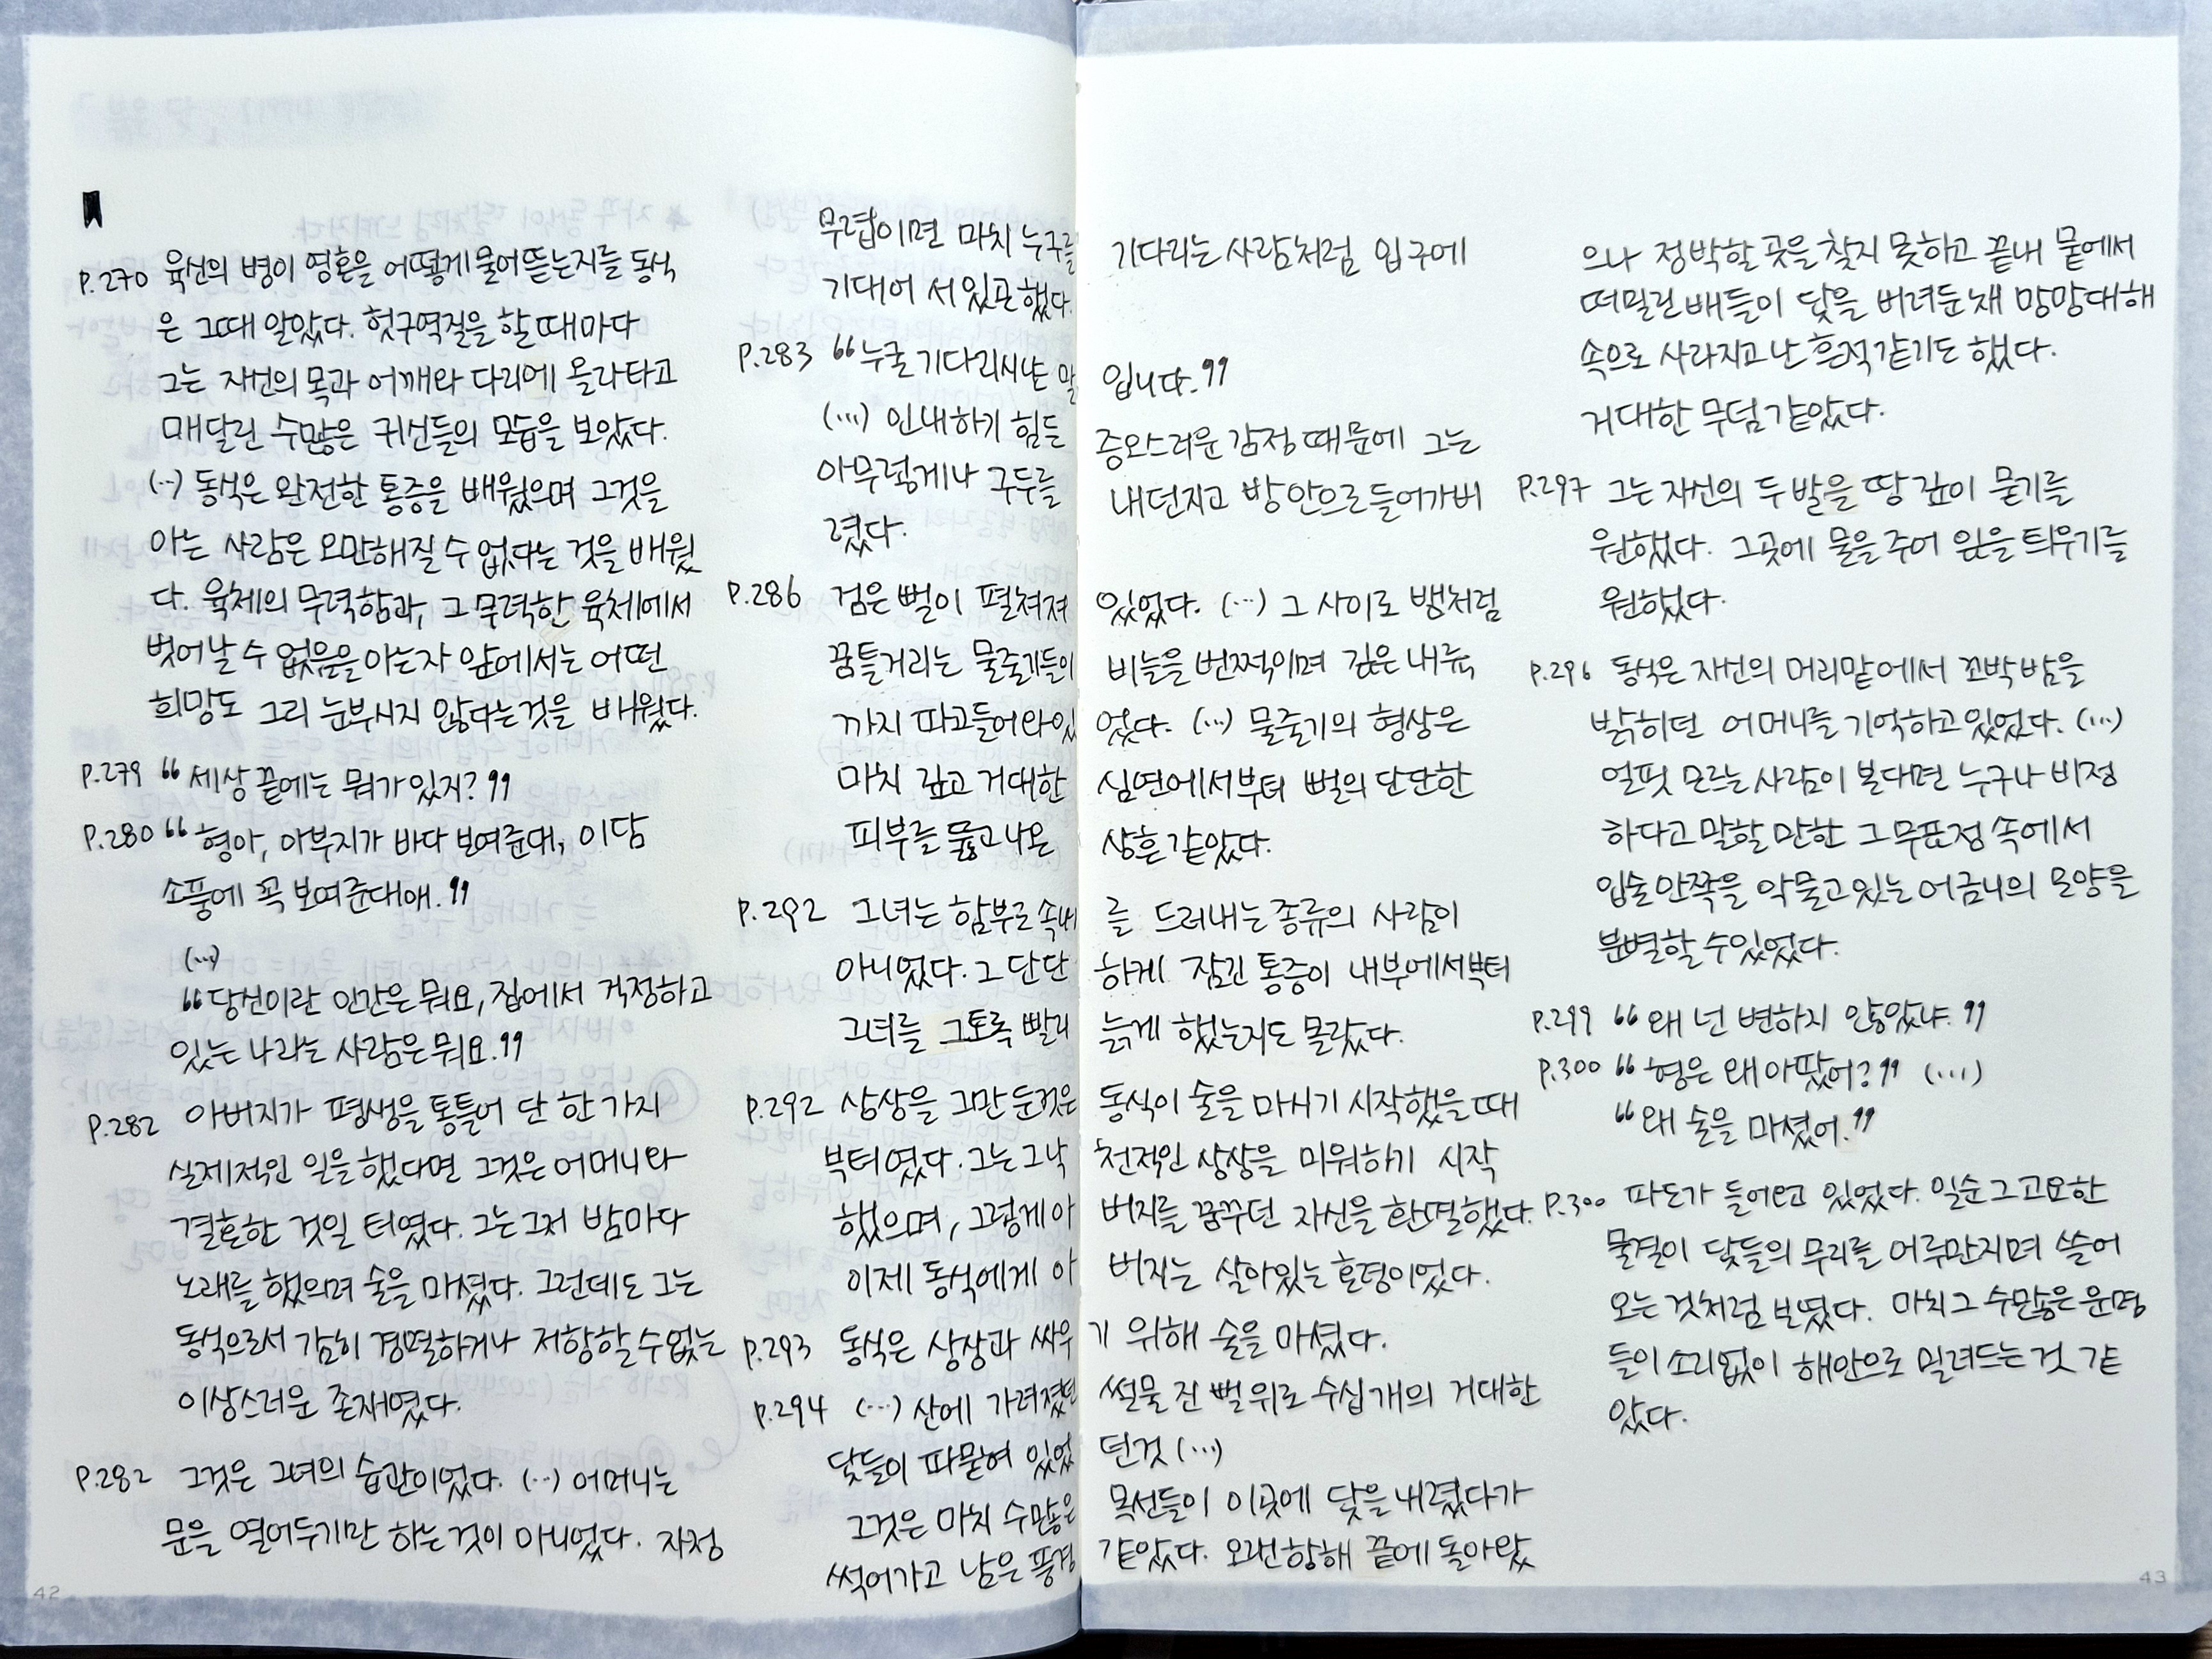 P.270 육신의 병이 영혼을 어떻게 물어뜯는지를 동식
은 그때 알았다. 헛구역질을 할 때마다
그는 자신의 목과 어깨와 다리에 올라타고
매달린 수많은 귀신들의 모습을 보았다.
(…) 동식은 완전한 통증을 배웠으며 그것을
아는 사람은 오만해질 수 없다는 것을 배웠
다. 육체의 무력함과, 그 무력한 육체에서
벗어날 수 없음을 아는 자 앞에서는 어떤
희망도 그리 눈부시지 않다는 것을 배웠다.
P.279 “세상 끝에는 뭐가 있지?”
P.280 “형아, 아부지가 바다 보여준대, 이담
소풍에 꼭 보여준대애.”
(…)
“당신이란 인간은 뭐요, 집에서 걱정하고
있는 나라는 사람은 뭐요.”
P.282 아버지가 평생을 통틀어 단 한 가지
실제적인 일을 했다면 그것은 어머니와
결혼한 것일 터였다. 그는 그저 밤마다
노래를 했으며 술을 마셨다. 그런데도 그는
동식으로서 감히 경멸하거나 저항할 수 없는
이상스러운 존재였다.
P.282 그것은 그녀의 습관이었다. (…) 어머니는
문을 열어두기만 하는 것이 아니었다. 자정
무렵이면 마치 누구를 기다리는 사람처럼 입구에
기대어 서 있곤 했다.
P.283 “누굴 기다리시냔 말입니다.”
(…) 인내하기 힘든 증오스러운 감정 때문에 그는
아무렇게나 구두를 내던지고 방 안으로 들어가버
렸다.
P.286 검은 뻘이 펼쳐져 있었다. (…) 그 사이로 뱀처럼
꿈틀거리는 물줄기들이 비늘을 번쩍이며 깊은 내륙
까지 파고들어와 있었다. (…) 물줄기의 형상은
마치 깊고 거대한 심연에서부터 뻘의 단단한
피부를 뚫고 나온 상흔 같았다.
P.292 그녀는 함부로 속내를 드러내는 종류의 사람이
아니었다. 그 단단하게 잠긴 통증이 내부에서부터
그녀를 그토록 빨리 늙게 했는지도 몰랐다.
P.292 상상을 그만 둔 것은 동식이 술을 마시기 시작했을 때
부터였다. 그는 그 낙천적인 상상을 미워하기 시작
했으며, 그렇게 아버지를 꿈꾸던 자신을 환멸했다.
이제 동식에게 아버지는 살아있는 혼령이었다.
P.293 동식은 상상과 싸우기 위해 술을 마셨다.
P.294 (…) 산에 가려졌던 썰물 진 뻘 위로 수십 개의 거대한
닻들이 파묻혀 있었던 것 (…)
그것은 마치 수많은 목선들이 이곳에 닻을 내렸다가
썩어가고 남은 풍경 같았다. 오랜 항해 끝에 돌아왔
으나 정박할 곳을 찾지 못하고 끝내 뭍에서
떠밀린 배들이 닻을 버려둔 채 망망대해
속으로 사라지고 난 흔적 같기도 했다.
거대한 무덤 같았다.
P.297 그는 자신의 두 발을 땅 깊이 묻기를
원했다. 그곳에 물을 주어 잎을 틔우기를
원했다.
P.296 동식은 자신의 머리맡에서 꼬박 밤을
밝히던 어머니를 기억하고 있었다. (…)
얼핏 모르는 사람이 본다면 누구나 비정
하다고 말할 만한 그 무표정 속에서
입술 안쪽을 악물고 있는 어금니의 모양을
분별할 수 있었다.
P.299 “왜 넌 변하지 않았냐.”
P.300 “형은 왜 아팠어?” (…)
“왜 술을 마셨어.”
P.300 파도가 들어오고 있었다. 일순 그 고요한
물결이 닻들의 무리를 어루만지며 쓸어
오는 것처럼 보였다. 마치 그 수많은 운명
들이 소리없이 해안으로 밀려드는 것 같
았다.
42
43